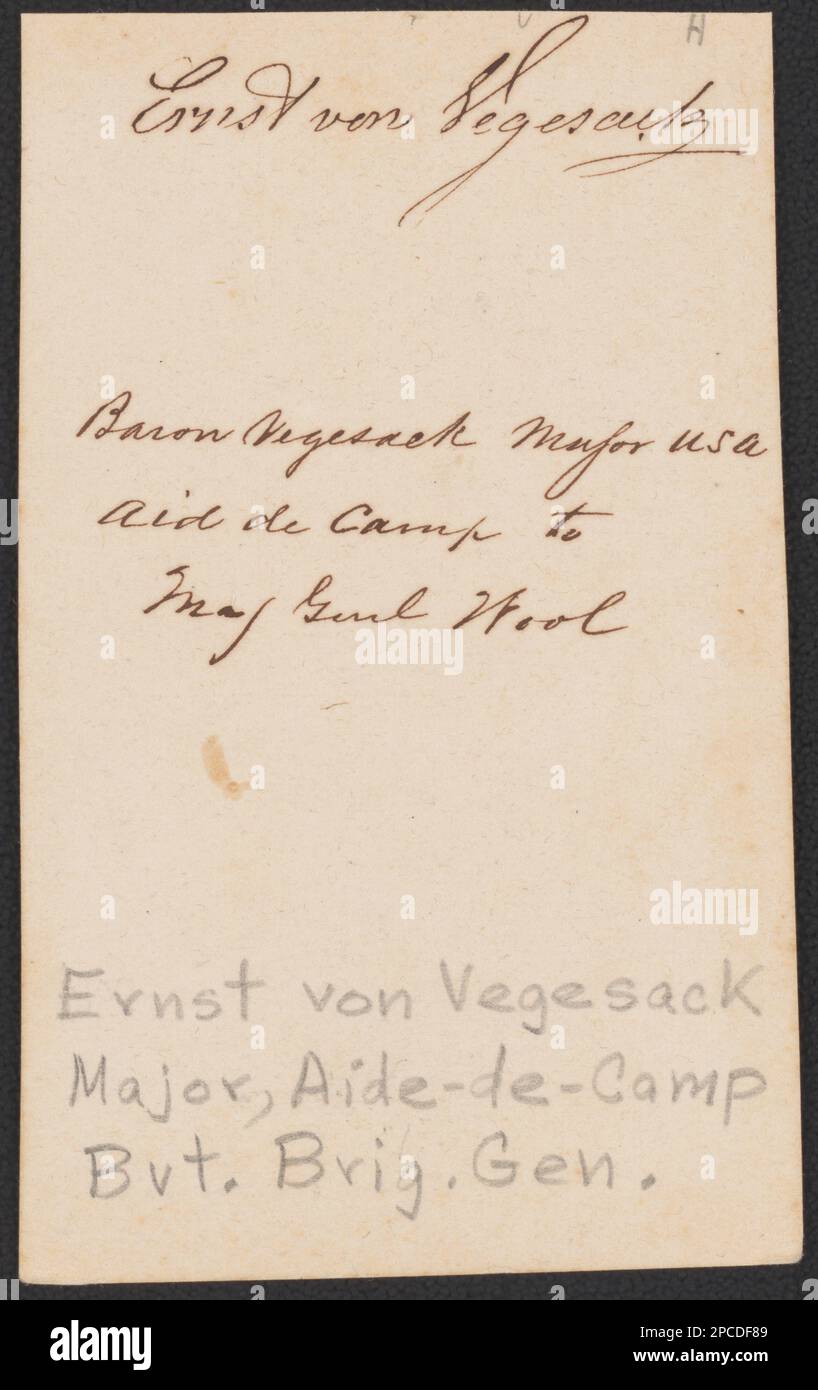 H
Ernst von Vegesack
Baron Vegesack Major USA
Aid de Camp to
Maj Genl Wool
Ernst von Vegesack
Major, Aide-de-Camp
Bvt. Brig. Gen.
alamy
alamy
alamy
Image ID: 2PCDF89
www.alamy.com